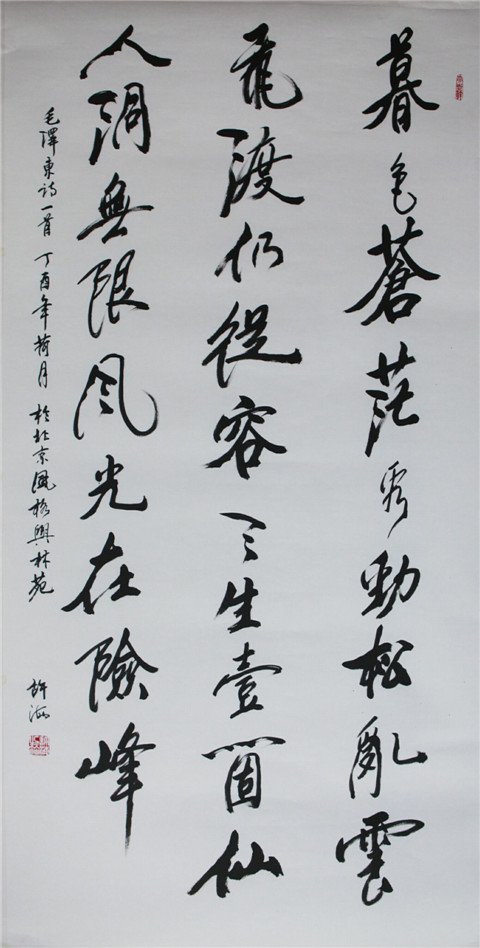 暮色蒼茫看勁松亂雲
飛渡仍從容天生壹箇仙
人洞無限風光在險峰
毛澤東詩一首 丁酉年荷月 於北京風格與林苑
許